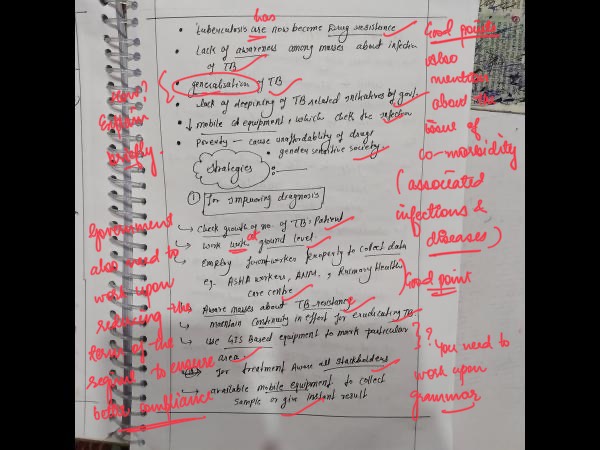 has
• tuberculosis are now become Drug resistance
• Lack of awareness among masses about infection
of TB
• generalisation of TB
• Lack of deepining of TB related initiatives by govt.
• ↓ mobile equipment, which check the infection
• Poverty — cause unaffordability of drugs
• gender sensitive society
Strategies
① For improving diagnosis
→ Check growth of no. of TB's Patient
→ Work work at ground level
→ Employ frontworker property to collect data
eg. ASHA workers, ANM, Primary Health
care centre
→ Aware masses about TB resistance
→ maintain Continuity in effort for eradicating TB
→ Use GIS Based equipment to mark particular
area.
For treatment Aware all stakholders
→ available mobile equipment to collect
sample or give instant result
How?
Explain
briefly.
Government
also need to
work upon
reducing the
term of the
regime to ensure
better compliance
Good points
also
mention
about the
issue of
co-morbidity
(associated
infections &
diseases)
Good point
?? You need to
work upon
grammar